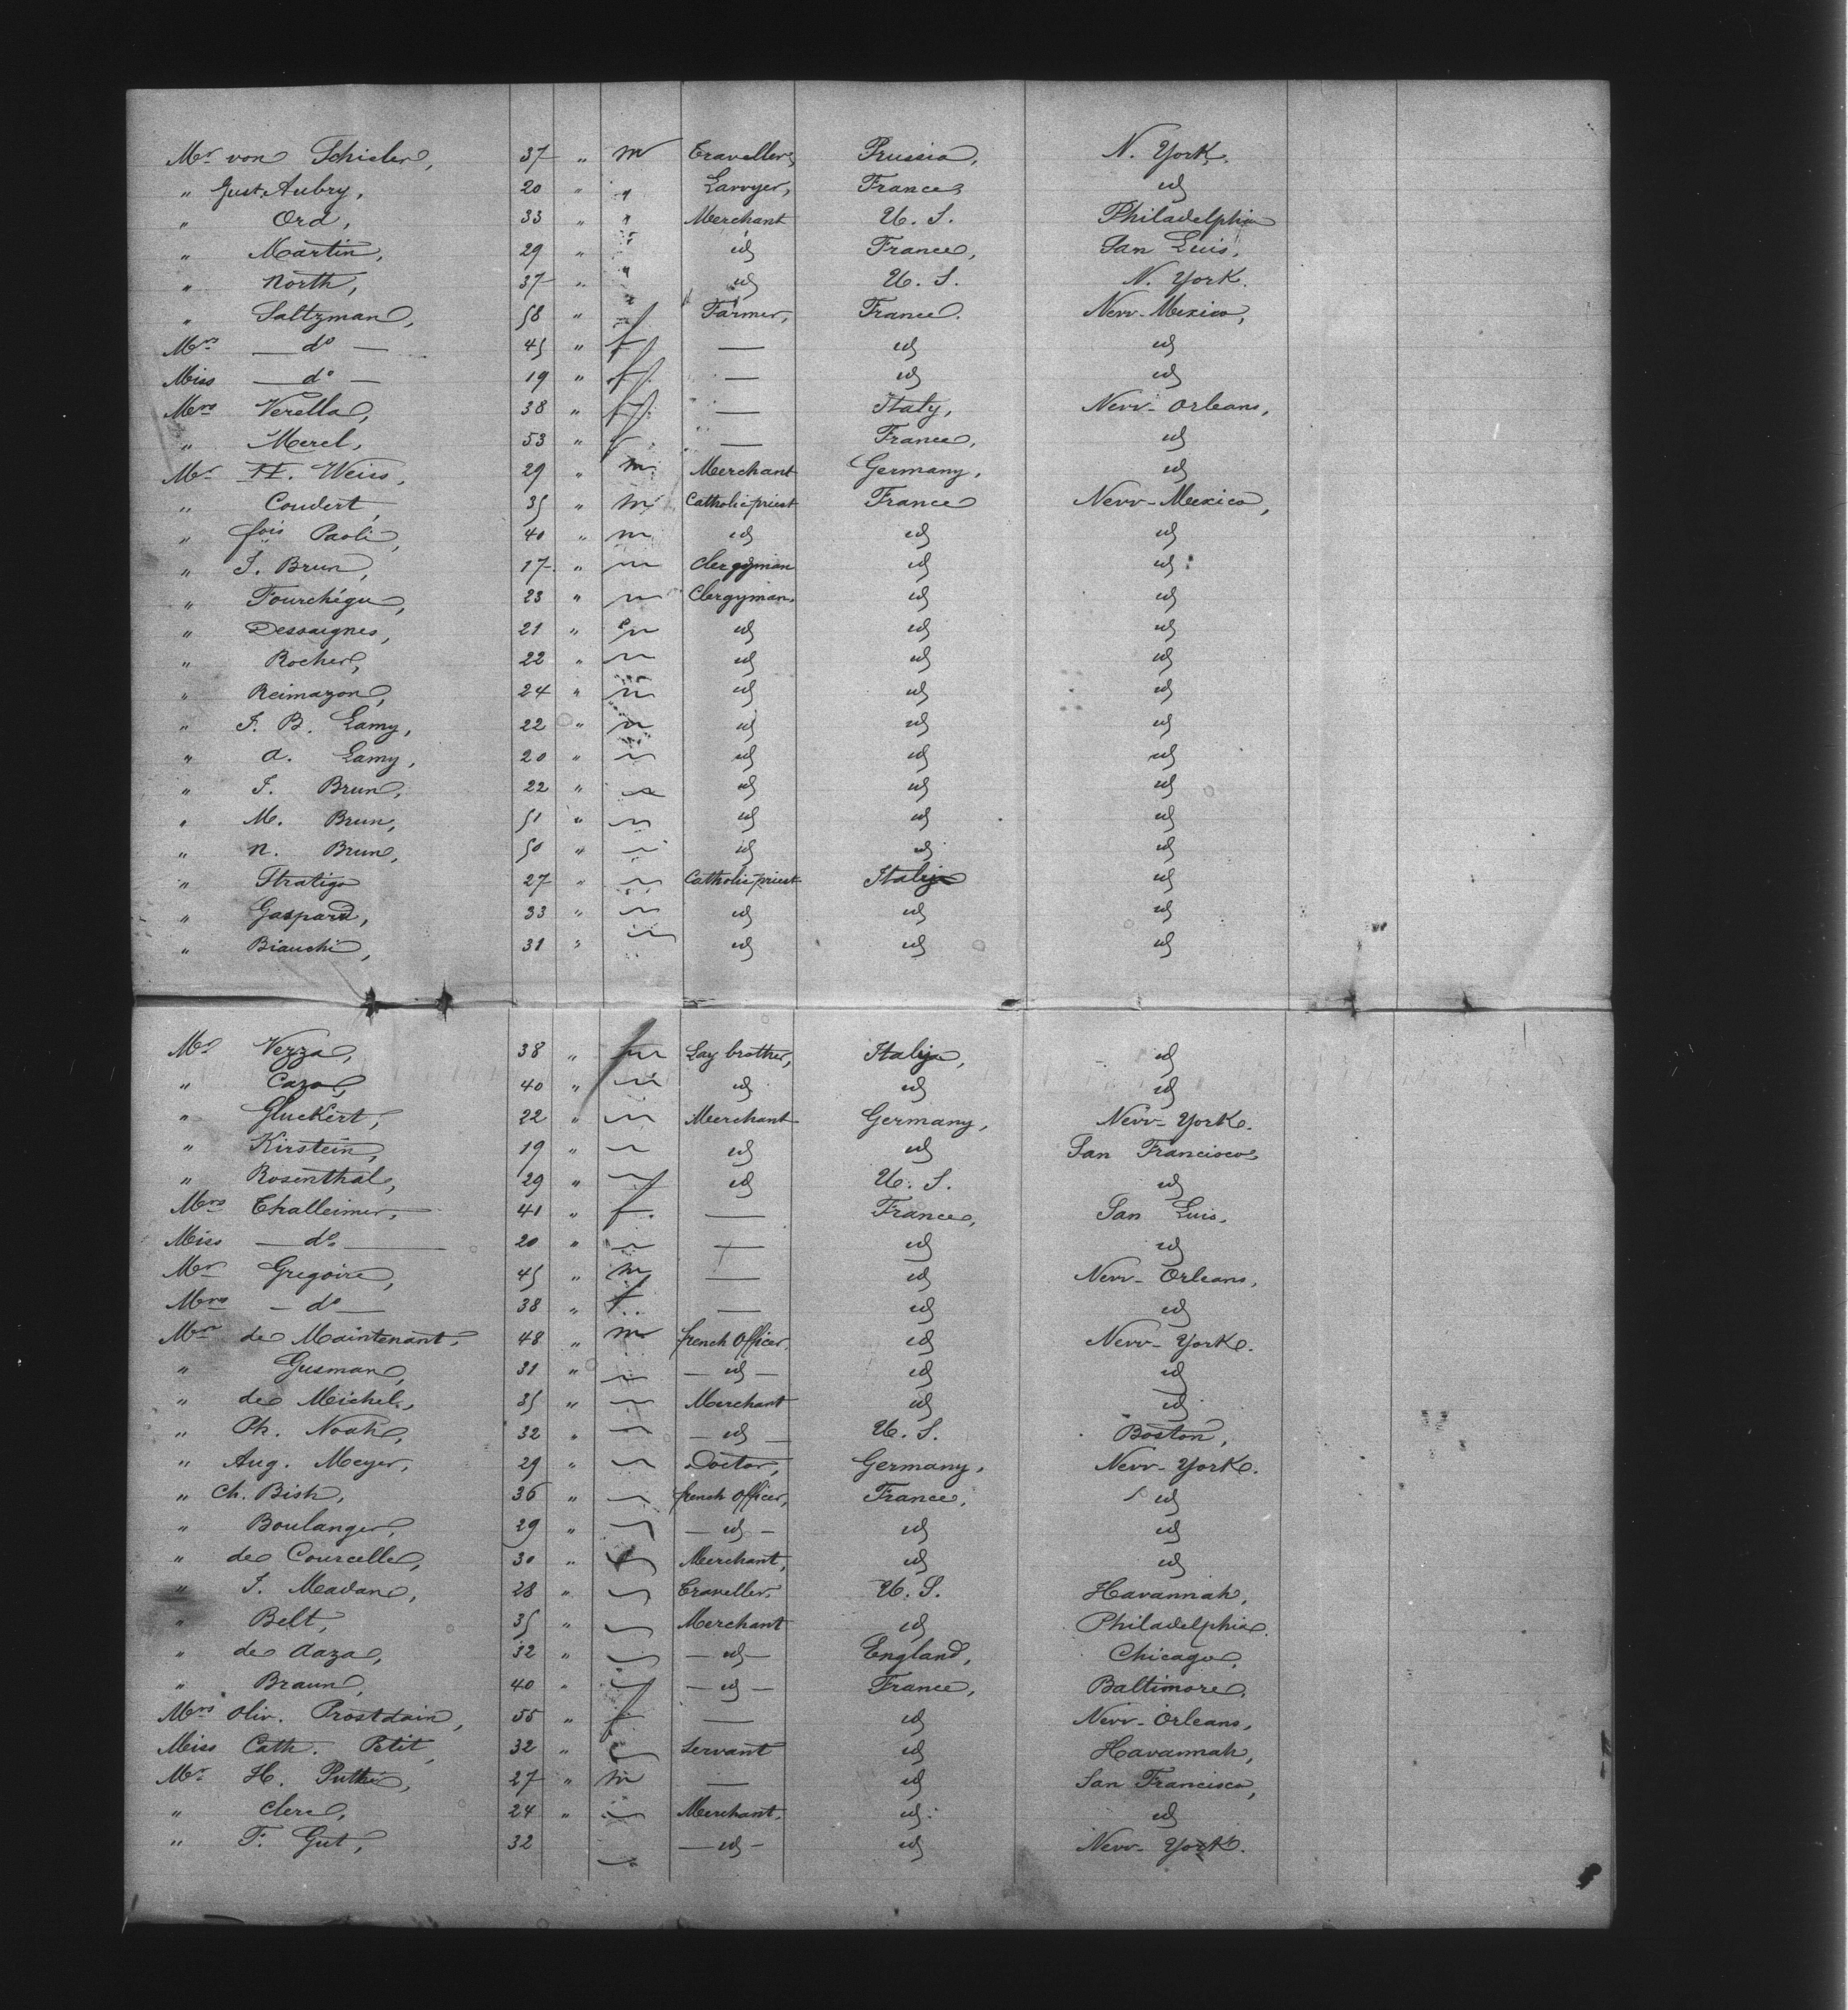 Mr von Schieler, 37 " m Traveller, Prussia, N. York.
" Gust. Aubry, 20 " " Lawyer, France, id
" Ord, 33 " " Merchant U. S. Philadelphia
" Martin, 29 " " id France, San Luis,
" North, 37 " " id U. S. N. York.
" Saltzman, 58 " " Farmer, France. New-Mexico,
Mrs — do — 45 " f — id id
Miss — do — 19 " f. — id id
Mrs Verella, 38 " f. — Italy, New-Orleans,
" Merel, 53 " f — France, id
Mr H. Weiss, 29 " m. Merchant Germany, id
" Coudert, 35 " m Catholic priest France New-Mexico,
" fois Paoli, 40 " m id id id
" J. Brun, 17 " m Clergyman id id
" Fourchégu, 23 " m Clergyman. id id
" Dessaignes, 21 " m id id id
" Rocher, 22 " m id id id
" Reimazon, 24 " m id id id
" J. B. Lamy, 22 " m id id id
" A. Lamy, 20 " m id id id
" J. Brun, 22 " m id id id
" M. Brun, 51 " m id id id
" N. Brun, 50 " m id id id
" Stratigo 27 " m Catholic priest Italy id
" Gaspard, 33 " m id id id
" Bianchi, 31 " m id id id
Mr Vezza, 38 " m Lay brother, Italy, id
" Caza, 40 " m id id id
" Gluckert, 22 " m Merchant Germany, New-York.
" Kirstein, 19 " m id id San Francisco,
" Rosenthal, 29 " m id U. S. id
Mrs Thalleimer, 41 " f. — France, San Luis.
Miss — do — 20 " — id id
Mr Gregoire, 45 " m — id New-Orleans,
Mrs — do — 38 " f. — id id
Mr de Maintenant, 48 " m french Officer. id New-York.
" Gusman, 31 " — id — id id
" de Michel, 35 " Merchant id id
" Ph. Noah, 32 " — id — U. S. Boston,
" Aug. Meyer, 29 " Doctor, Germany, New-York.
" Ch. Bish, 36 " french Officer, France, id
" Boulanger, 29 " — id — id id
" de Courcelle, 30 " Merchant, id id
" J. Madan, 28 " Traveller. U. S. Havannah,
" Belt, 35 " Merchant id Philadelphia.
" de Aaza, 32 " — id — England, Chicago,
" Braun, 40 " — id — France, Baltimore,
Mrs Oliv. Prostdain, 55 " f — id New-Orleans,
Miss Cath. Petit, 32 " Servant id Havannah,
Mr H. Puthé, 27 " m — id San Francisco,
" Clerc, 24 " Merchant. id id
" F. Gut, 32 — id — id New-York.